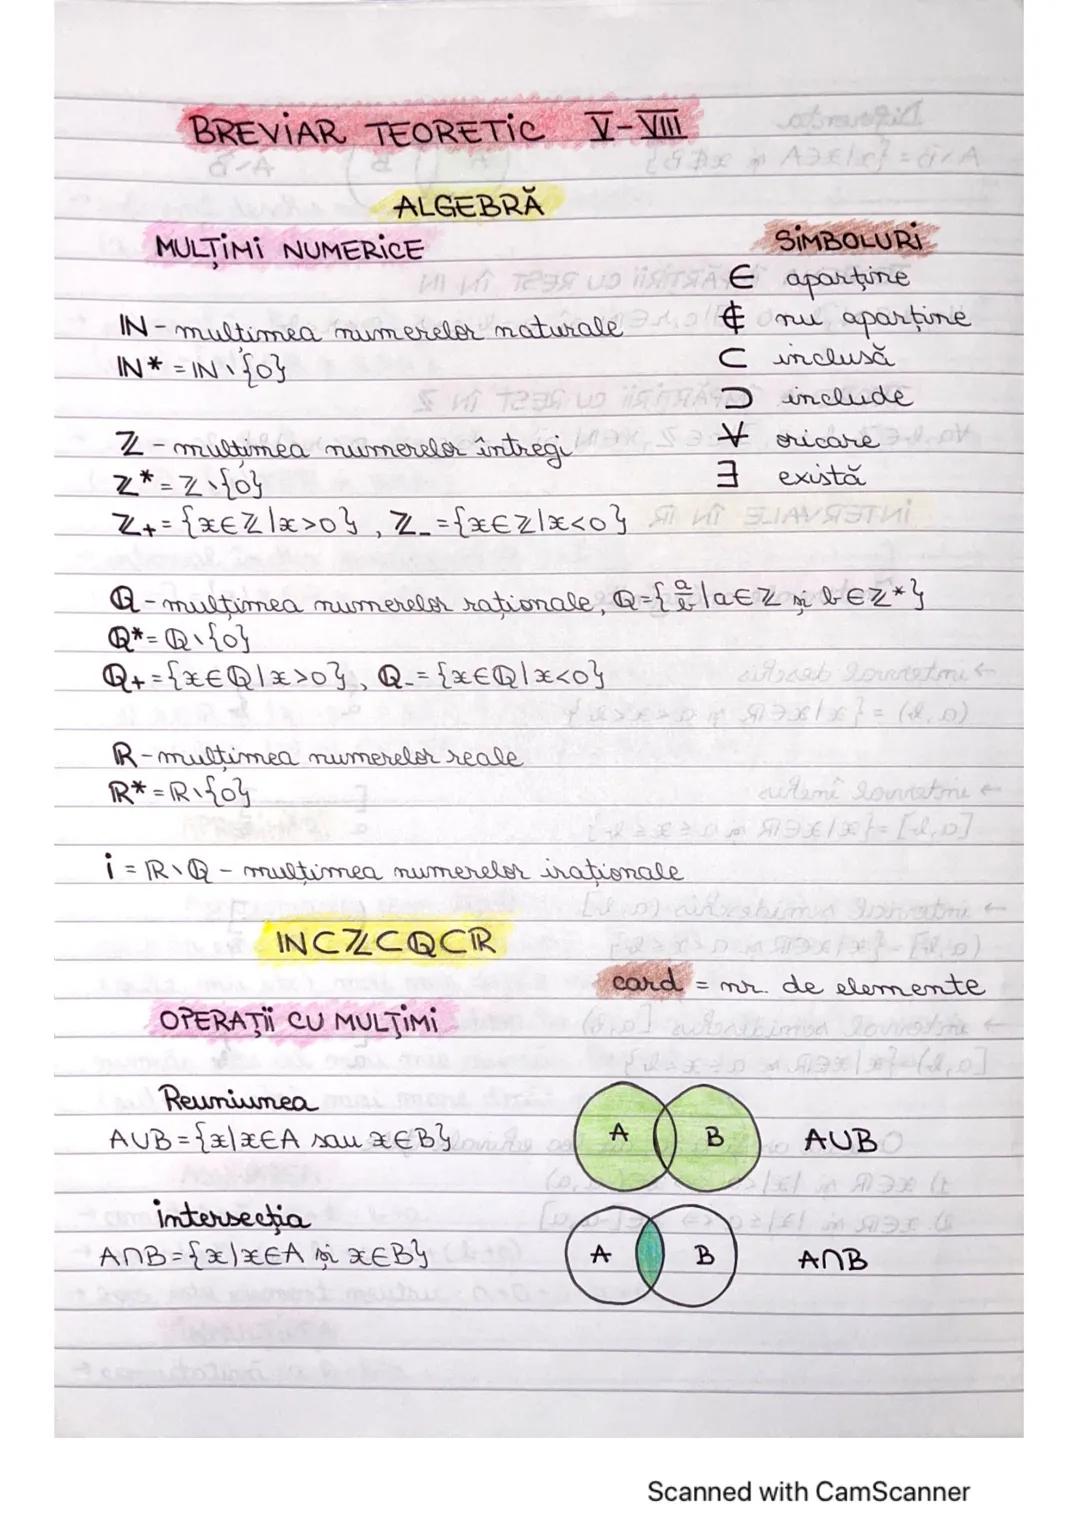 BREVIAR TEORETIC V-VIII
ALGEBRĂ
MULȚIMI NUMERICE
SIMBOLURI
∈ aparține
∉ nu aparține
⊂ inclusă
⊃ include
∀ oricare
∃ există
ℕ - mulțimea numerelor naturale
ℕ* = ℕ \ {0}
ℤ - mulțimea numerelor întregi
ℤ* = ℤ \ {0}
ℤ+ = {x∈ℤ|x>0}, ℤ- = {x∈ℤ|x<0}
ℚ - mulțimea numerelor raționale, ℚ-{a/b |a∈ℤ și b∈ℤ*}
ℚ* = ℚ \ {0}
ℚ+ = {x∈ℚ|x>0}, ℚ- = {x∈ℚ|x<0}
ℝ - mulțimea numerelor reale
ℝ* = ℝ \ {0}
i = ℝ \ ℚ - mulțimea numerelor iraționale
ℕ⊂ℤ⊂ℚ⊂ℝ
card = nr. de elemente
OPERAȚII CU MULȚIMI
Reuniunea
A∪B = {x|x∈A sau x∈B}
A B A∪B
intersecția
A∩B = {x|x∈A și x∈B}
A B A∩B
Scanned with CamScanner